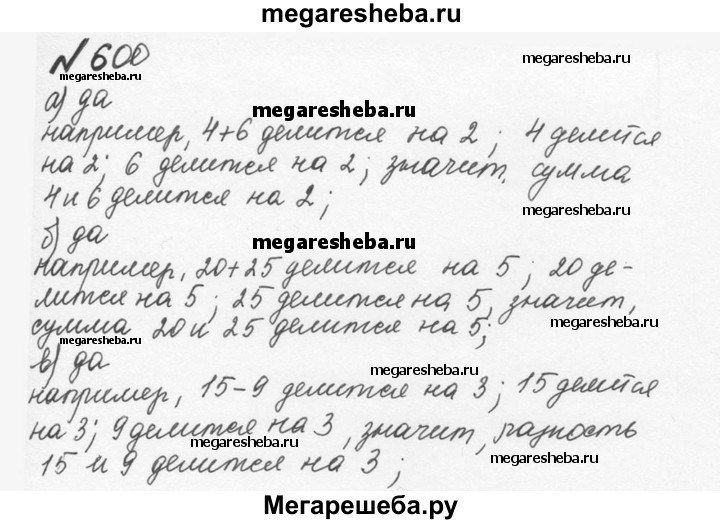 megaresheba.ru
№ 600
megaresheba.ru
а) да
megaresheba.ru
например, 4+6 делится на 2; 4 делится
на 2; 6 делится на 2; значит, сумма
4 и 6 делится на 2;
megaresheba.ru
б) да
megaresheba.ru
например, 20+25 делится на 5; 20 де-
лится на 5; 25 делится на 5, значит,
megaresheba.ru
сумма 20 и 25 делится на 5;
megaresheba.ru
в) да
megaresheba.ru
например, 15-9 делится на 3; 15 делится
на 3; 9 делится на 3, значит, разность
megaresheba.ru
15 и 9 делится на 3;
megaresheba.ru
Мегарешеба.ру